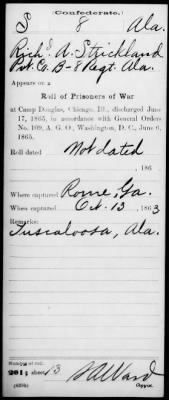 (Confederate.)
S 8 Ala.
Rich'd. A. Strickland
Pvt. Co. B-8 Regt. Ala.
Appears on a
Roll of Prisoners of War
at Camp Douglas, Chicago, Ill., discharged June
17, 1865, in accordance with General Orders
No. 109, A. G. O., Washington, D. C., June 6,
1865.
Roll dated
Not dated
, 186
Where captured Rome, Ga.
When captured Oct. 13, 1863
Remarks:
Tuscaloosa, Ala.
Number of roll:
201; sheet 13
Copyist.